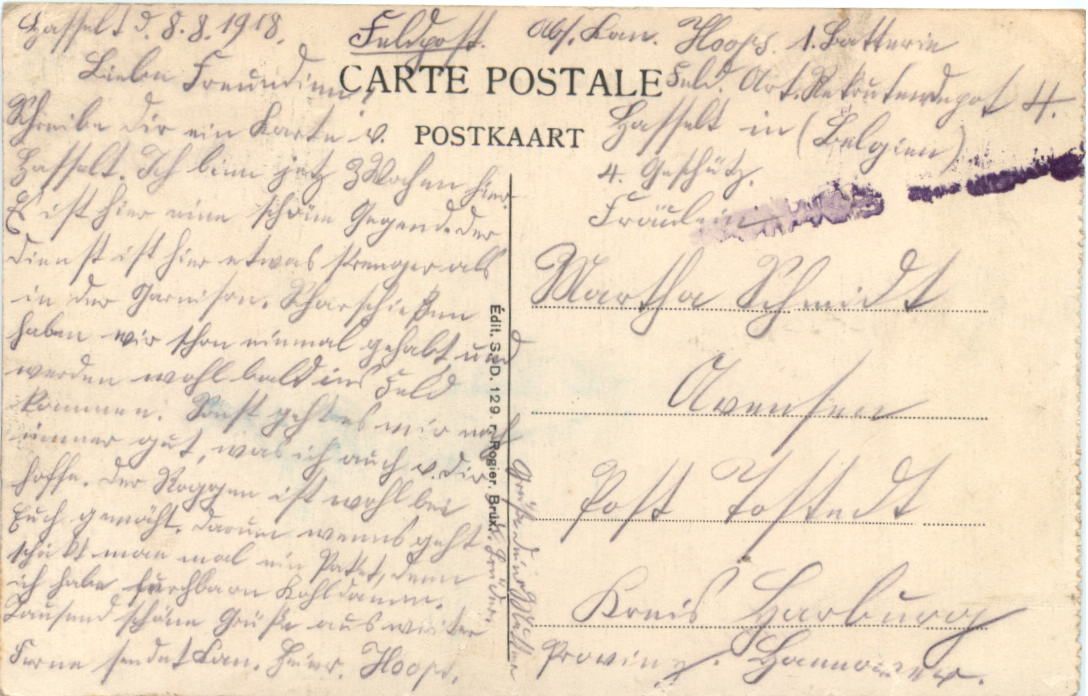 Hasselt d. 8.8.1918.
Liebe Freundin!
Schreibe dir ein Karte v.
Hasselt. Ich binn jetz 3 Wochen hier.
Es ist hier eine schöne Gegend. Der
Dienst ist hier etwas strenger als
in der Garnison. Scharfschießen
haben wir schon einmal gehabt, und
werden wohl bald ins Feld
kommen. Sonst geht es mir noch
immer gut, was ich auch v. dir
hoffe. Der Roggen ist wohl bei
Euch gemäht. Darum wenns geht
schickt man mal ein Paket, denn
ich habe furchbarn Kohldamm.
Tausend schöne Grüße aus weiter
Ferne sendet Kan. Heinr. Hoops.
Grüße deine Mutter
u. Brüder.
Feldpost.
CARTE POSTALE
POSTKAART
Abs. Kan. Hoops. 1. Batterie
Feld. Art. Rekrutendepot 4.
Hasselt in (Belgien)
4. Geschütz.
Fräulein
Martha Schmidt
Avensen
Post Tostedt
Kreis Harburg
Provinz. Hannover.
Édit. S.-D. 129 r. Rogier, Brux.